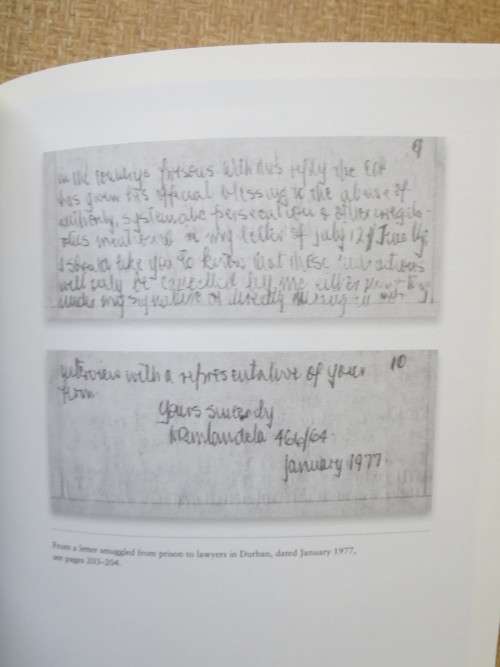 9
in the country's prisons. With this reply the COP
has given his official blessing to the abuse of
authority, systematic persecution & other irregula-
rities mentioned in my letter of July 12
I should like you to know that these instructions
will only be cancelled by me either
under my signature or directly during
10
interview with a representative of your
firm.
Yours sincerely
NRMandela 466/64
January 1977
From a letter smuggled from prison to lawyers in Durban, dated January 1977,
see pages 203–204.